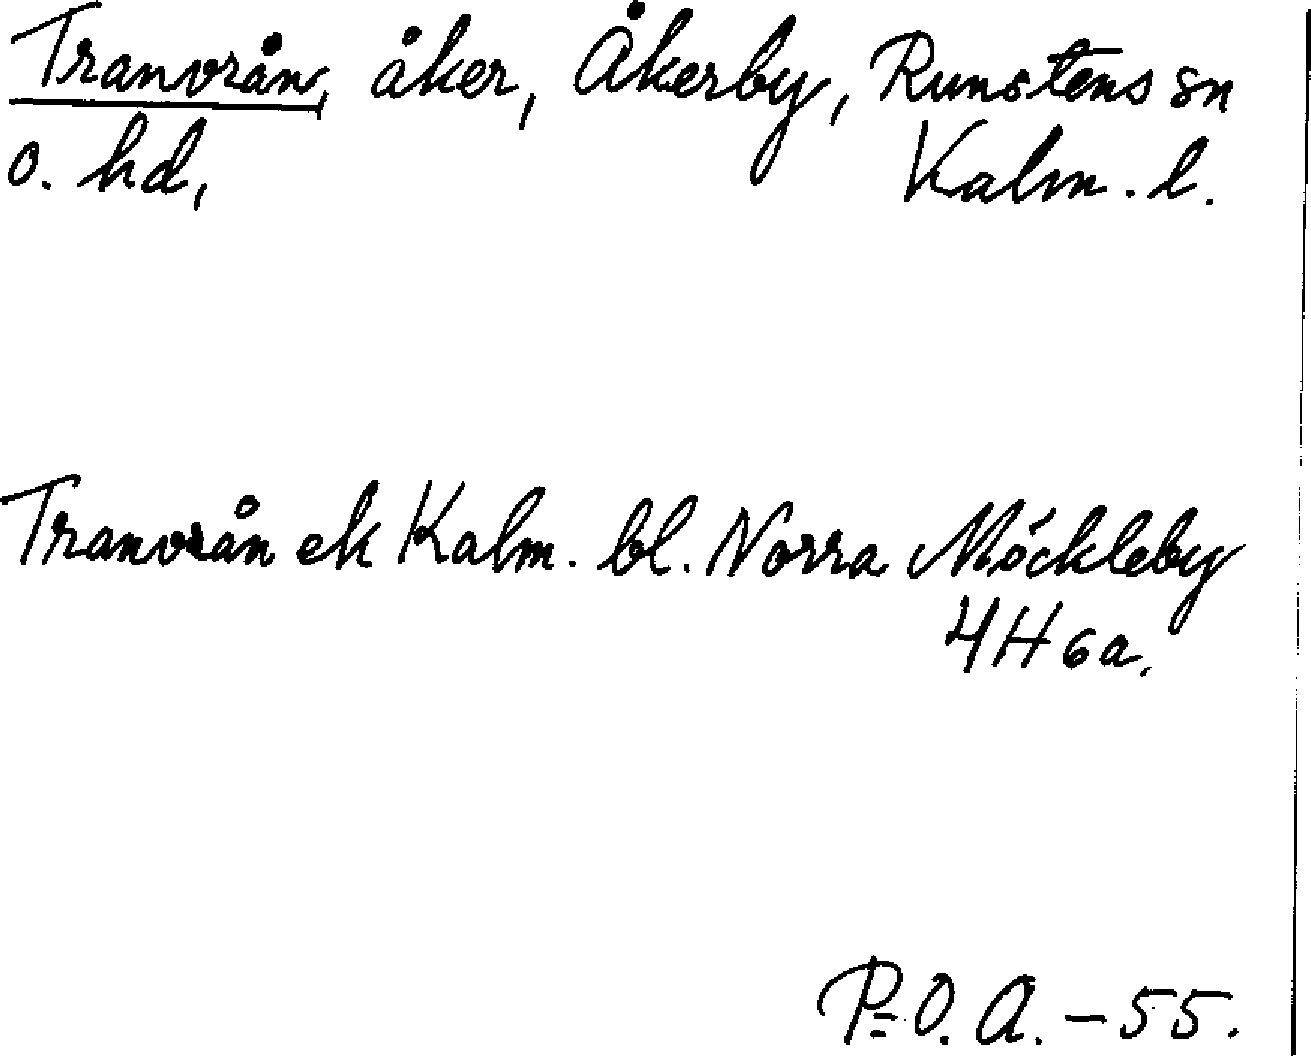 Tranvrån, åker, Åkerby, Runstens sn
o. hd, Kalm. l.
Tranvrån ek Kalm. bl. Norra Möckleby
4H 6a.
P-O. A. - 55.